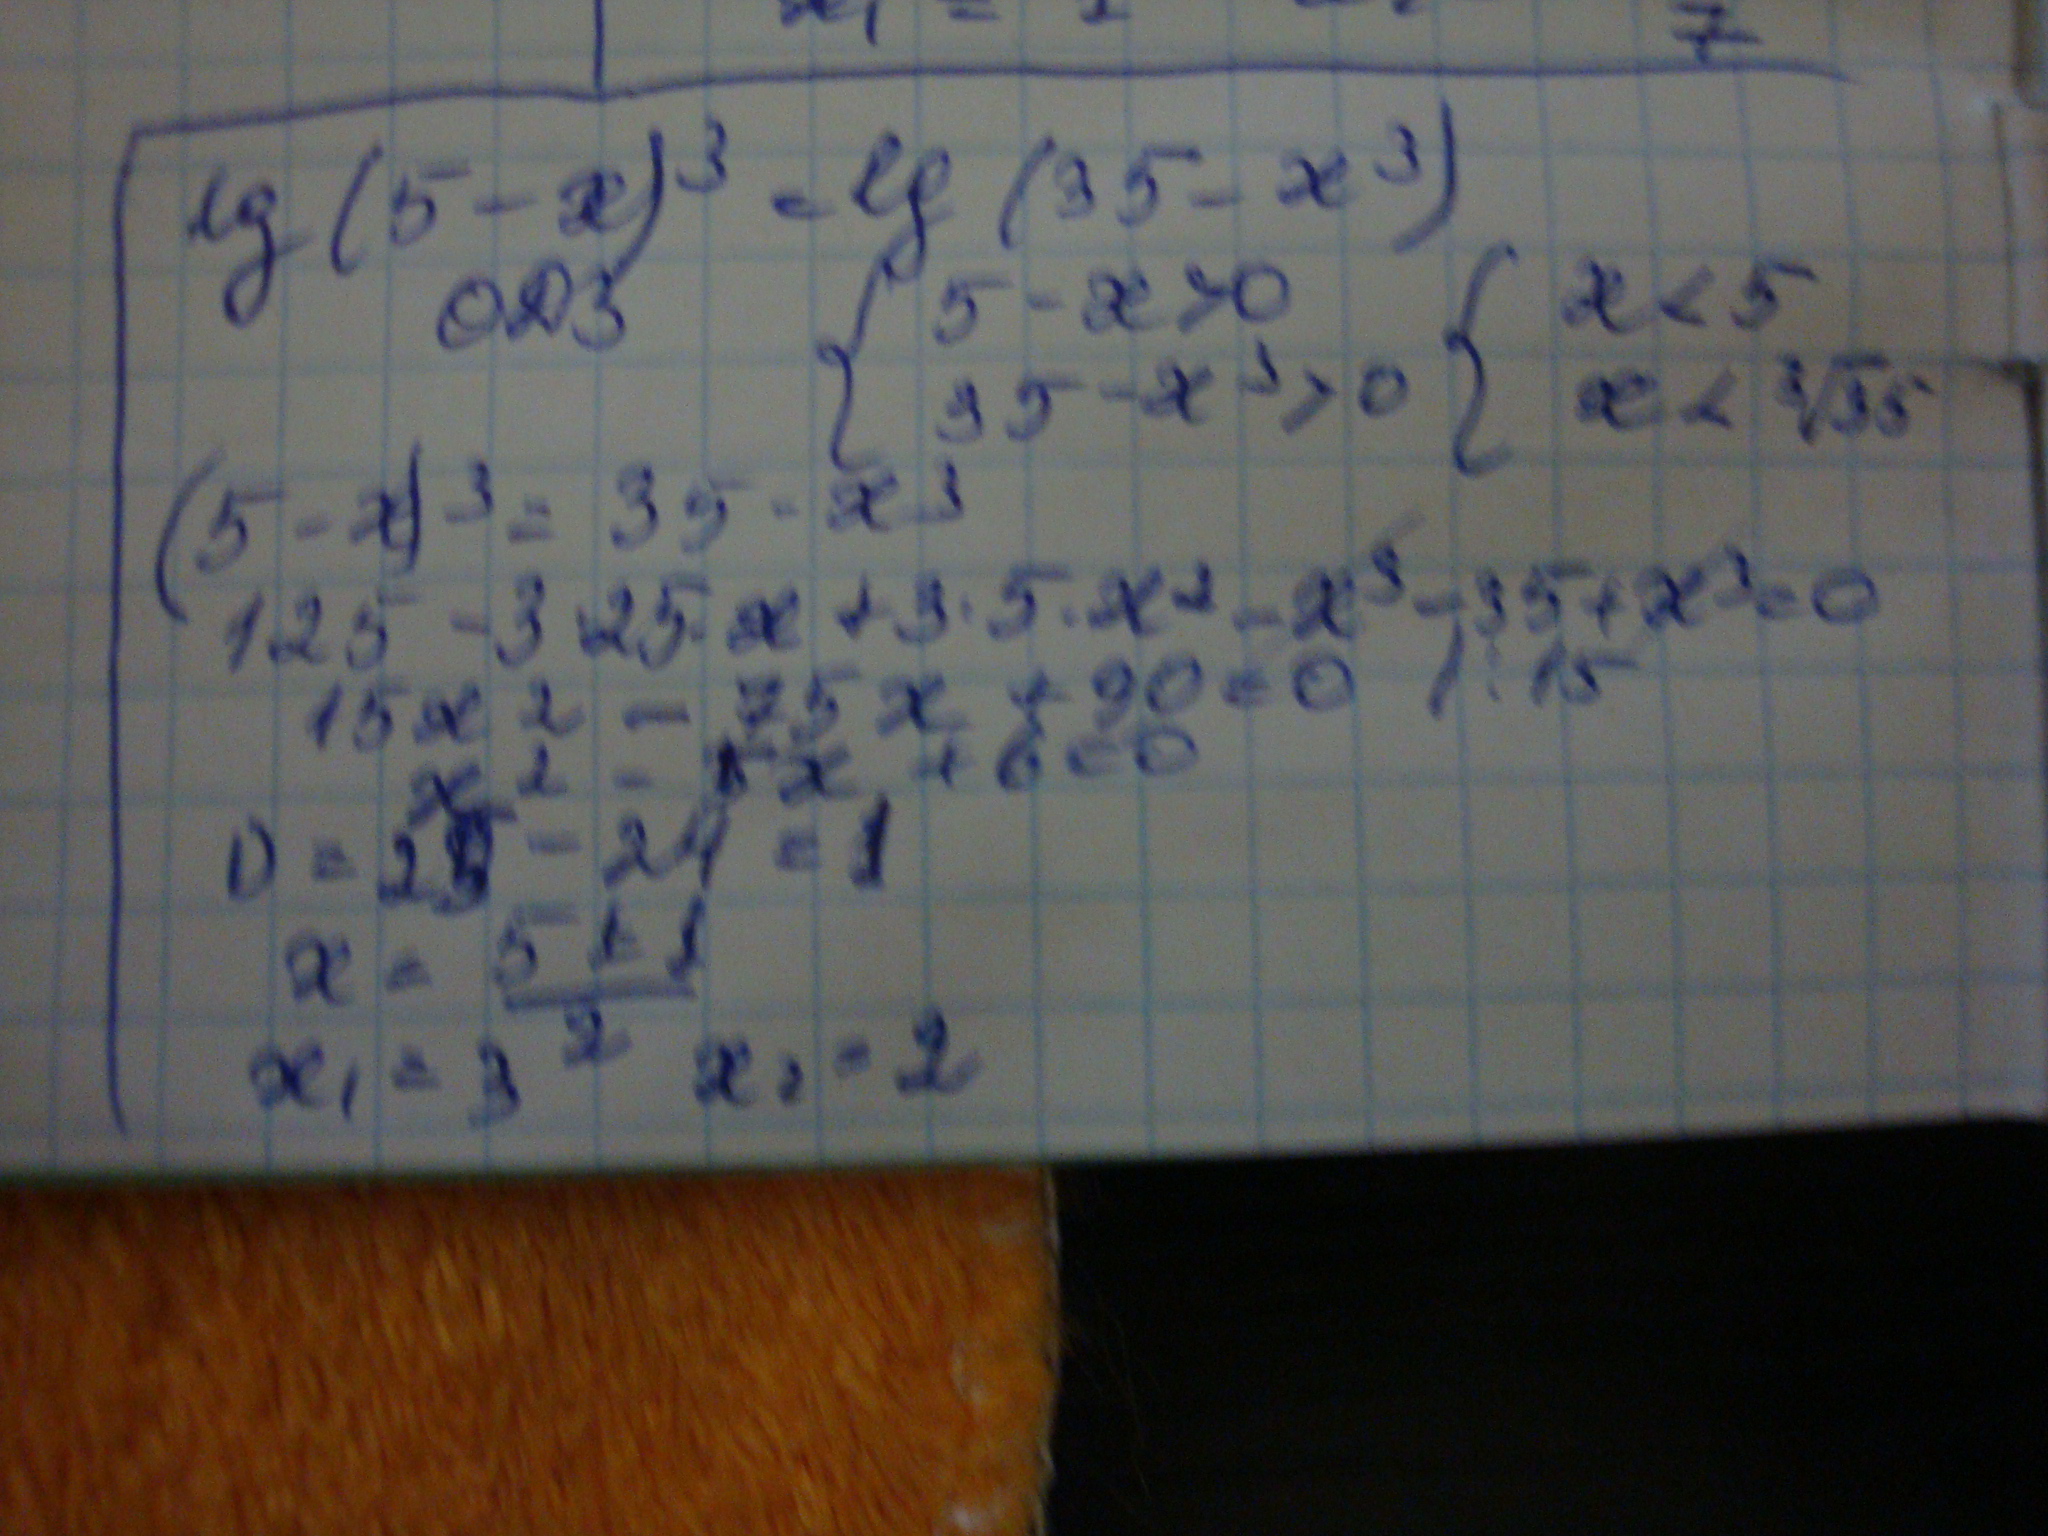 lg(5-x)³ = lg(35-x³)
ОДЗ { 5-x>0 { x<5
35-x³>0 x<∛35
(5-x)³ = 35-x³
125-3·25·x+3·5·x²-x³-35+x³=0
15x²-75x+90=0 |:15
x²-5x+6=0
D=25-24=1
x = (5±1)/2
x₁=3 x₂=2